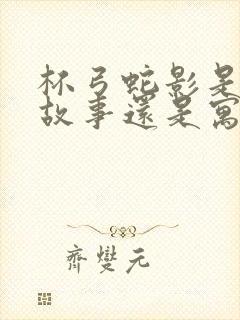 杯弓蛇影是
故事還是寓
齊燮元